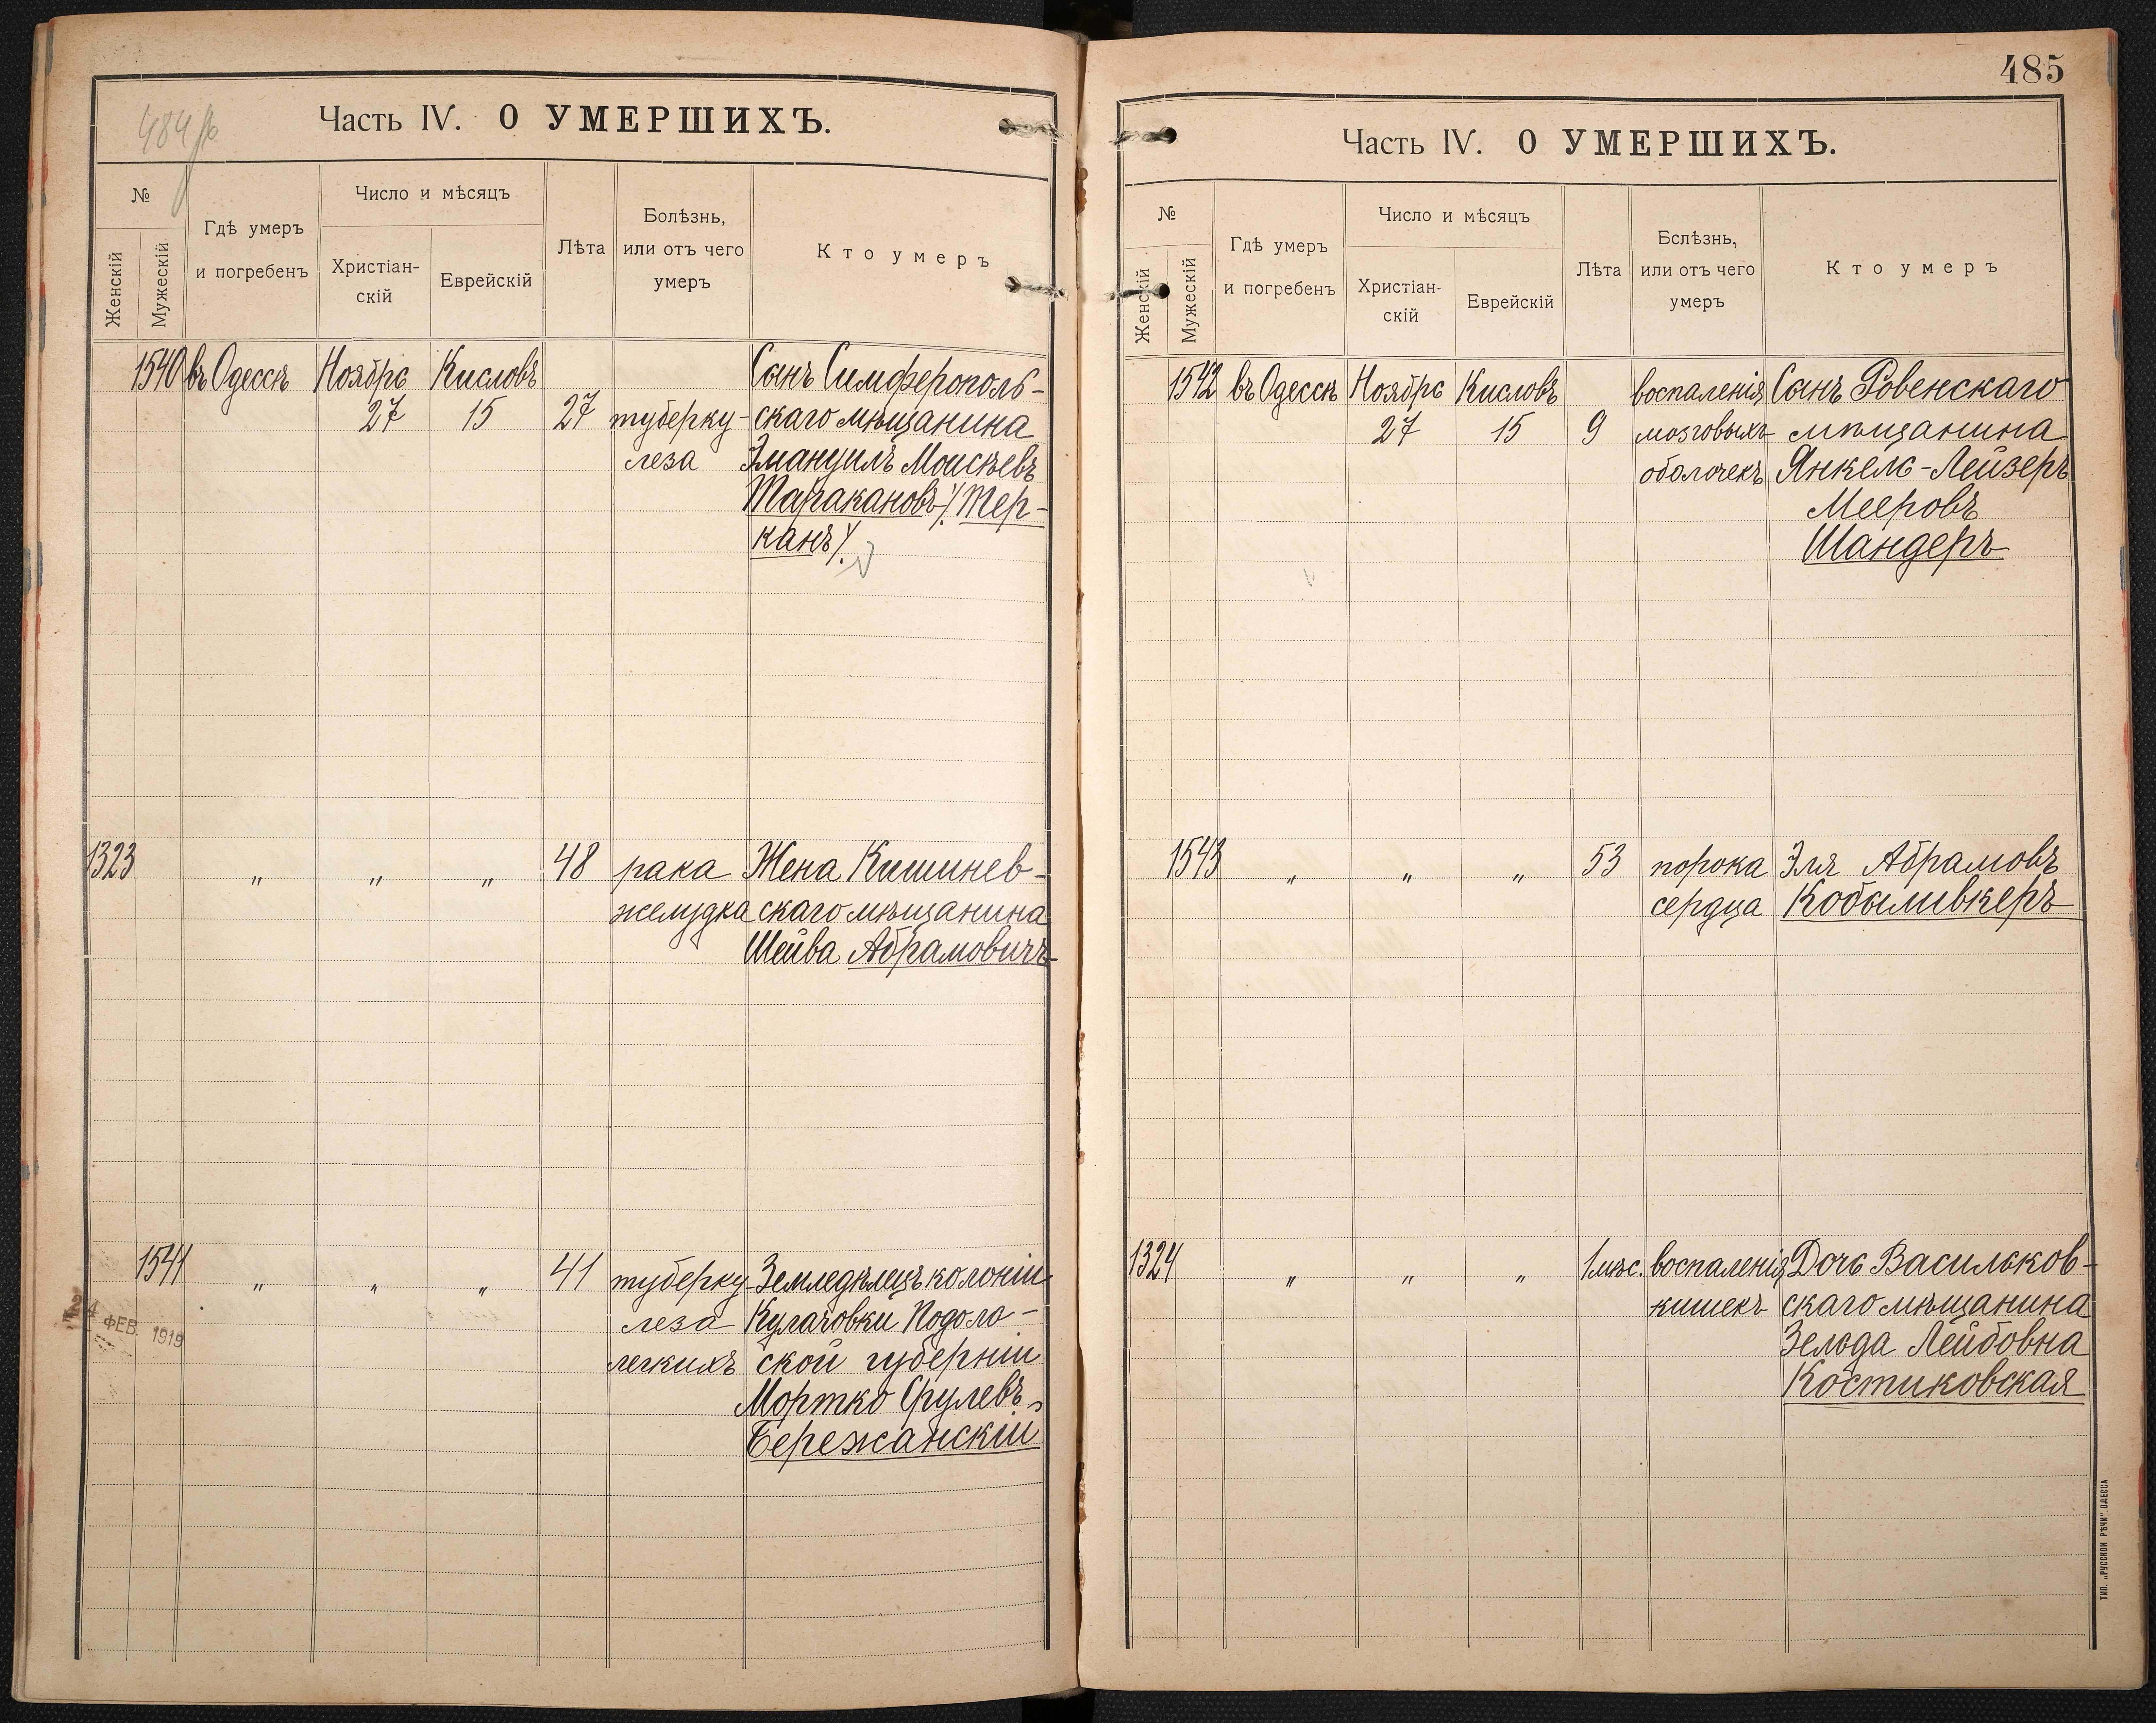 484 об
Часть IV. О УМЕРШИХЪ.
№
Женскій
Мужескій
Гдѣ умеръ
и погребенъ
Число и мѣсяцъ
Христіан-
скій
Еврейскій
Лѣта
Болѣзнь,
или отъ чего
умеръ
Кто умеръ
1540 въ Одессѣ Ноября Кисловъ Сынъ Симферополь-
27 15 27 туберку- скаго мѣщанина
леза Эмануилъ Моисѣевъ
Таракановъ /Тер-
канъ/.
1323 „ „ „ 48 рака Жена Кишинев-
желудка скаго мѣщанина
Шейва Абрамовичъ
1541 „ „ „ 41 туберку- Земледѣлецъ колоніи
леза Кулачовки Подоло-
легкихъ ской губерніи
Мортко Срулевъ
Бережанскій
24 ФЕВ. 1919
485
Часть IV. О УМЕРШИХЪ.
№
Женскій
Мужескій
Гдѣ умеръ
и погребенъ
Число и мѣсяцъ
Христіан-
скій
Еврейскій
Лѣта
Болѣзнь,
или отъ чего
умеръ
Кто умеръ
1542 въ Одессѣ Ноября Кисловъ воспаленія Сынъ Ровенскаго
27 15 9 мозговыхъ мѣщанина
оболочекъ Янкель-Лейзеръ
Мееровъ
Шандеръ
1543 „ „ „ 53 порока Эля Абрамовъ
сердца Кобыливкеръ
1324 „ „ „ 1 мѣс. воспаленія Дочь Васильков-
кишекъ скаго мѣщанина
Зельда Лейбовна
Костиковская
ТИП. „РУССКОЙ РѢЧИ“ ОДЕССА